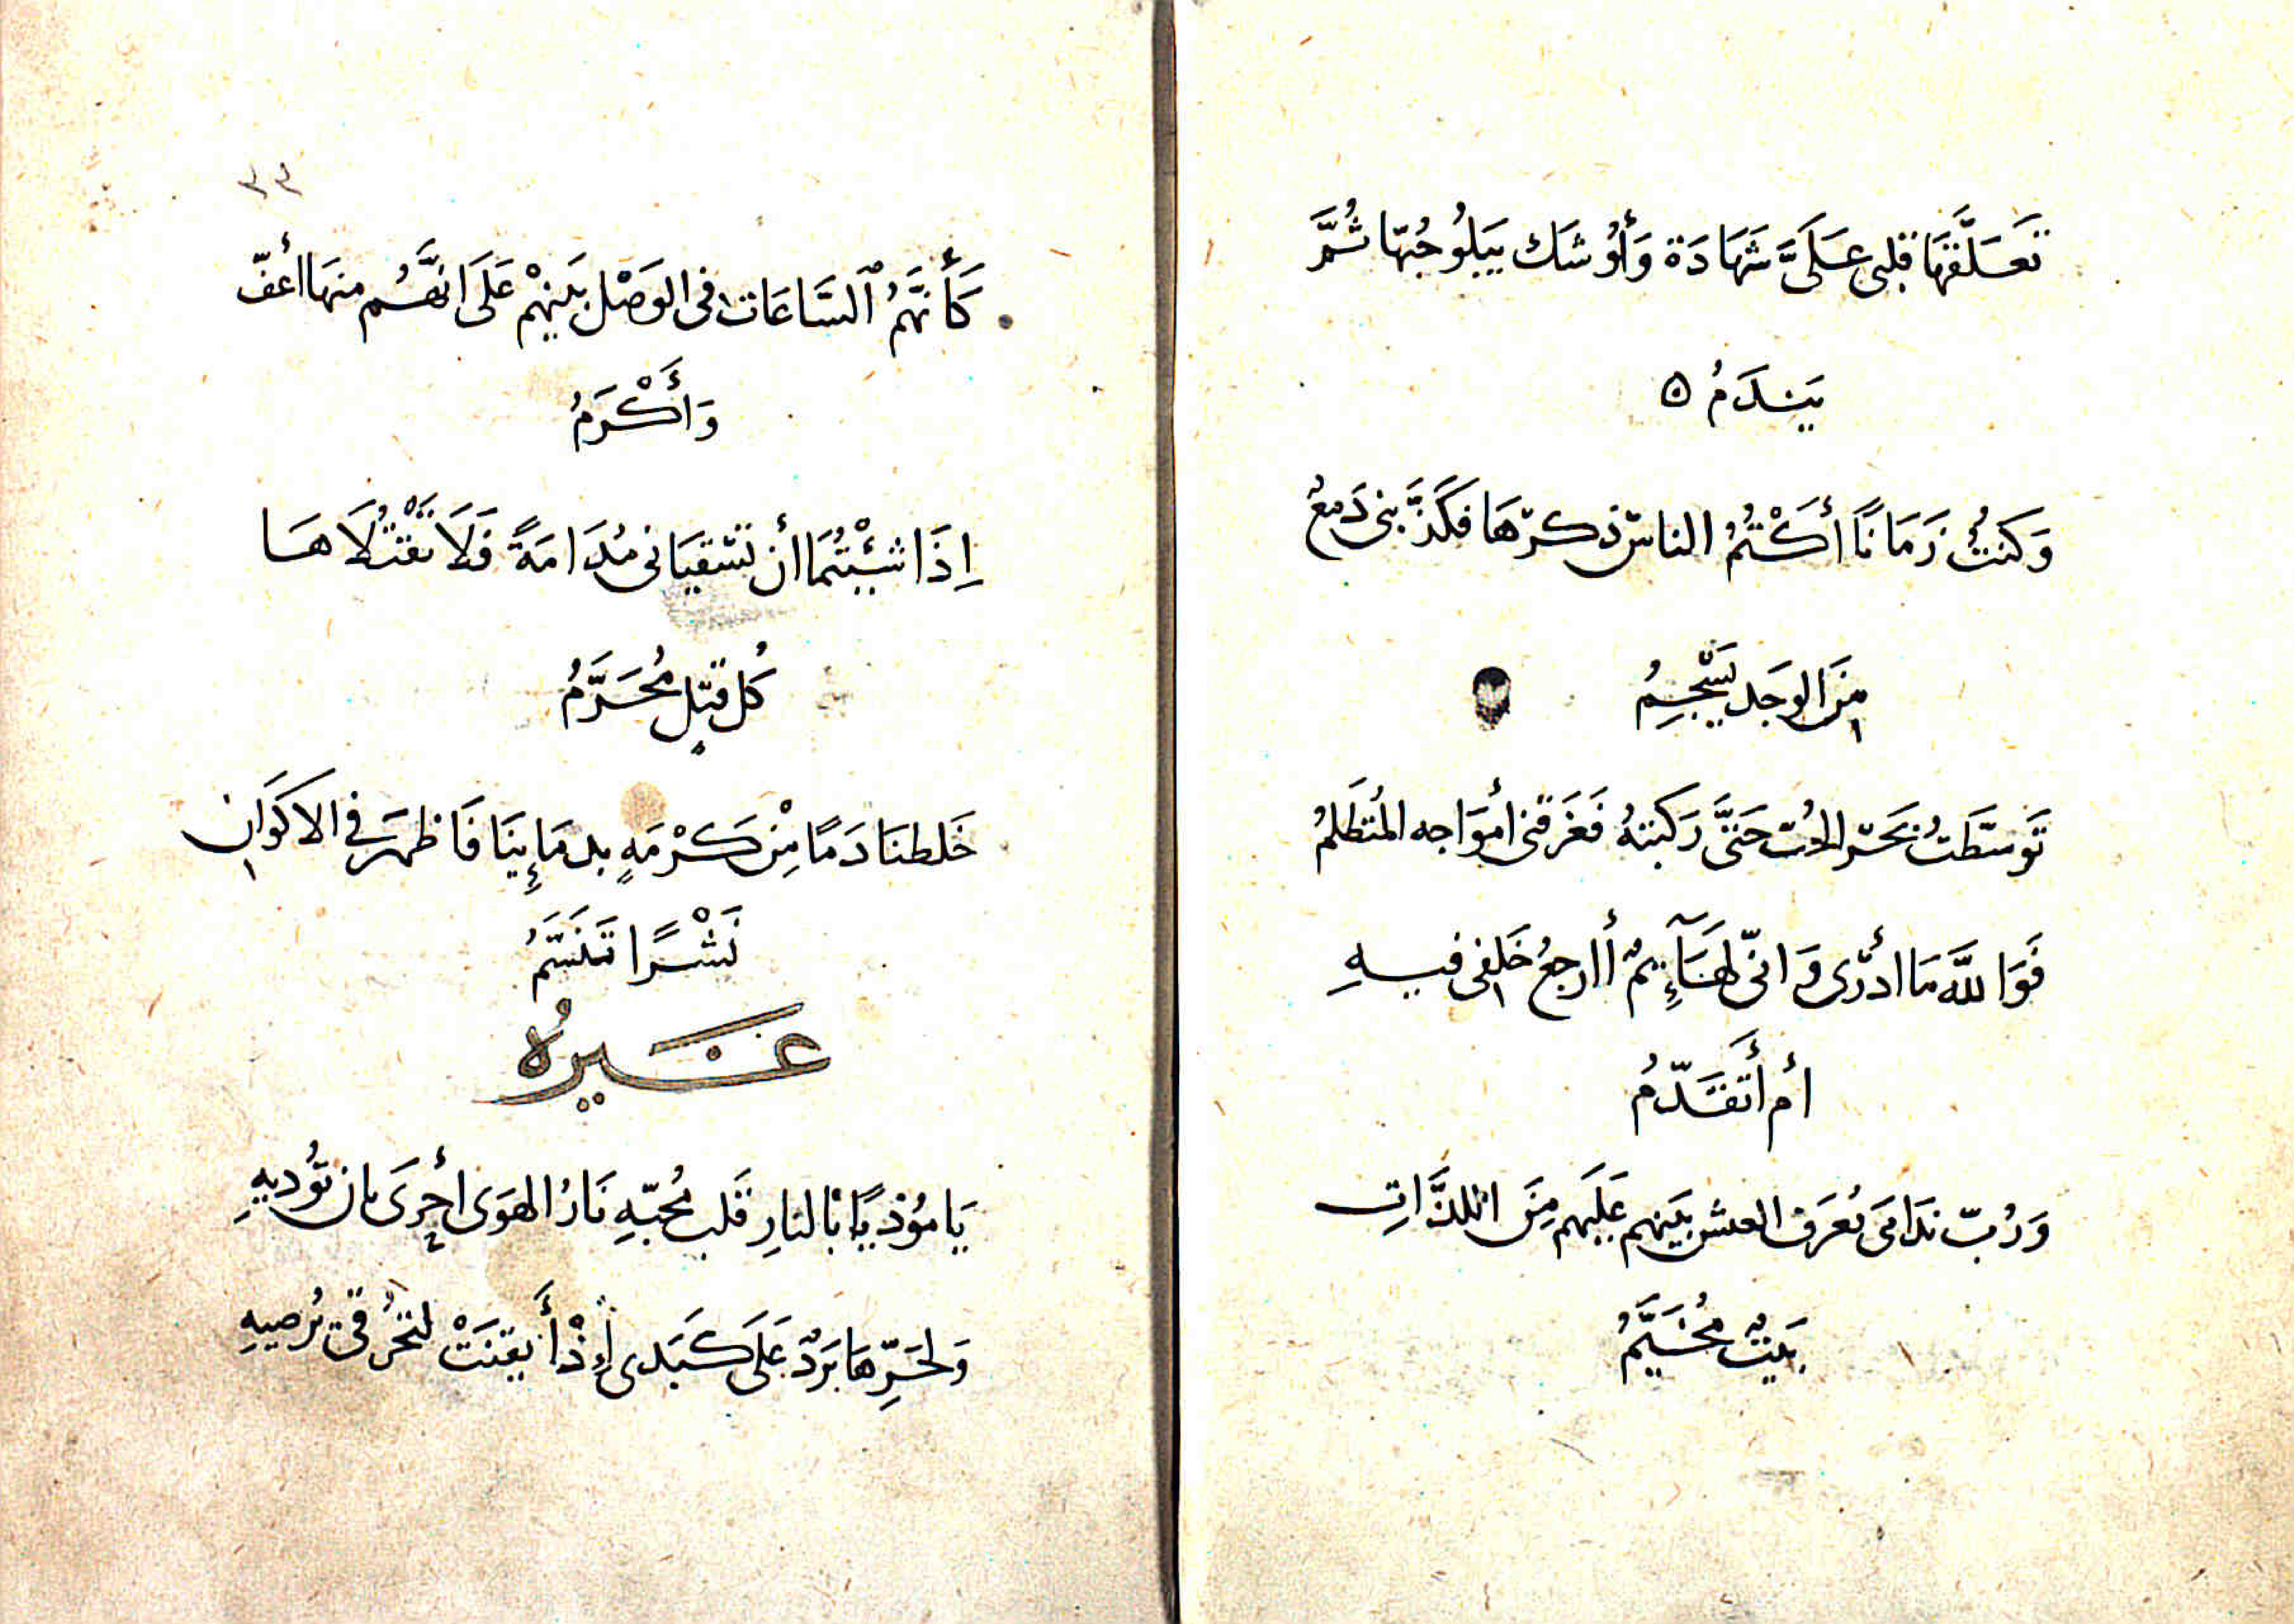 تَعَلَّقَهَا قلبى عَلَىَّ شَهَادَة وَأَوْشَك يَبَلُوحُبّهَا ثُمَّ
يَندَمُ ه
وَكنتُ زَمَانًا أَكْتُمُ الناسّ ذكرّهَا فكَذَّبنى دَمعُ
مِنَ الوجَد يَسْجِمُ
تَوسّطَتُ بَحَرّ الحُبّ حَتىَّ رَكبتهُ فَغَرَقنى أموَاجه المُتطَلمُ
فَوَاللَّه مَا أدرّى وَانىّ لهَآئِمٌ أارجعُ خَلفى فيهِ
أم أَتَقَدّمُ
وَرُبّ ندَامىَ يُعرَف العشى بَينهم عَلَيهم مِنَ اللذَّاتِ
بَيتٌ مُخَيَّمُ
٣٣
كَأَنَّهُمُ ٱلسَّاعَات فى الوَصْل بَينهمْ عَلَى انهَّم منهَا أعفّ
وَأَكْرَمُ
اِذَا شِئْتُمَا أن تَسّقيَانى مُدَامَةً فَلَا تَقْتُلَاهَا
كُل قتلٍ مُحَرَّمُ
خَلطنَا دَمًا مِنْ كَرْمَهٍ بدمَإِينَا فَاظهرَ فِى الاكوَانِ
نَشْرًا تَنَسّمُ
غَيرهُ
يَا مُؤذيًا بالنارِ قَلب مُحبّهِ نَارُ الهوَى أحرَى بان تؤُديهِ
وَلحَرِّهَا بَردٌ عَلَى كَبَدى إِذْ أَيقنَتْ لتحَرُّقى تُرضيهِ